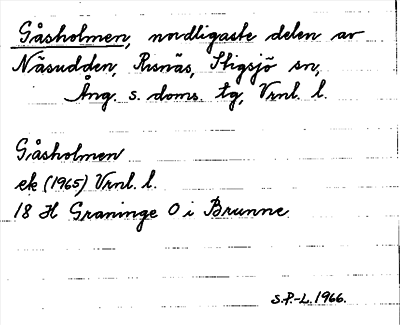 Gåsholmen, nordligaste delen av
Näsudden, Risnäs, Stigsjö sn,
Ång. s. doms. tg, Vrnl. l.
Gåsholmen
ek (1965) Vrnl. l.
18 H Graninge O i Brunne
S.P.-L. 1966.